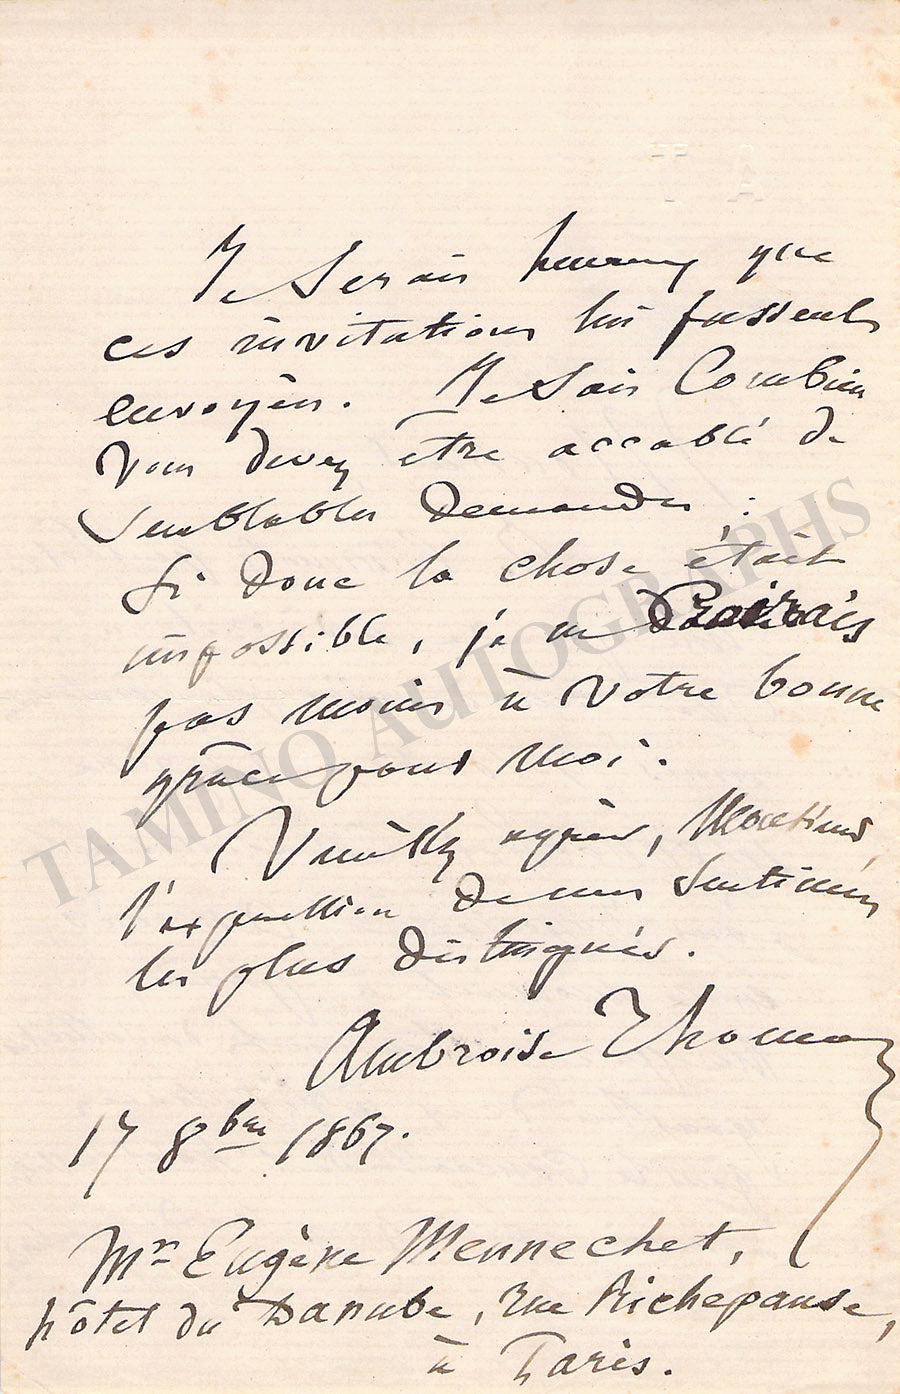 Je serais heureux que
ces invitations lui fussent
envoyées. Je sais combien
vous devez être accablé de
semblables demandes ;
si donc la chose était
impossible, je ne croirais
pas moins à votre bonne
grâce pour moi.
Veuillez agréer, Monsieur,
l'expression de mes sentimens
les plus distingués.
Ambroise Thomas
17 8bre 1867.
Mr Eugène Mennechet,
hôtel du Danube, rue Richepanse,
à Paris.
TAMINO AUTOGRAPHS